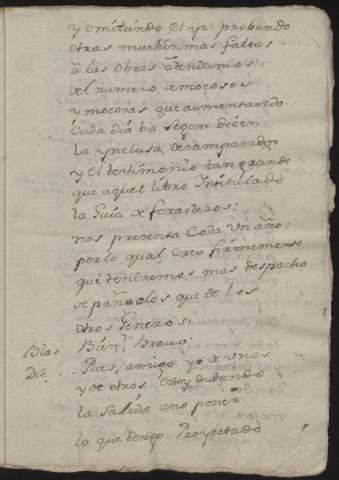 y omitiendo el yr probando
otras muchisimas faltas
â las obras atendamos
del numero de mocosos
y mocosas que aumentando
Cada dia ba segun dicen
la ynclusa, desamparados
y el testimonio tan grande
que aquel libro Intitulado
la Guia de forasteros:
nos presenta Cada un año:
por lo qual creo firmemente
que tendremos mas despacho
de pañuelos que de los
otros Generos.
Blas Bien, Brabo:
Die. Pues, amigo yo de unos
y de otros, estoy dudando
la salida a no poner
lo que tengo Proyectado